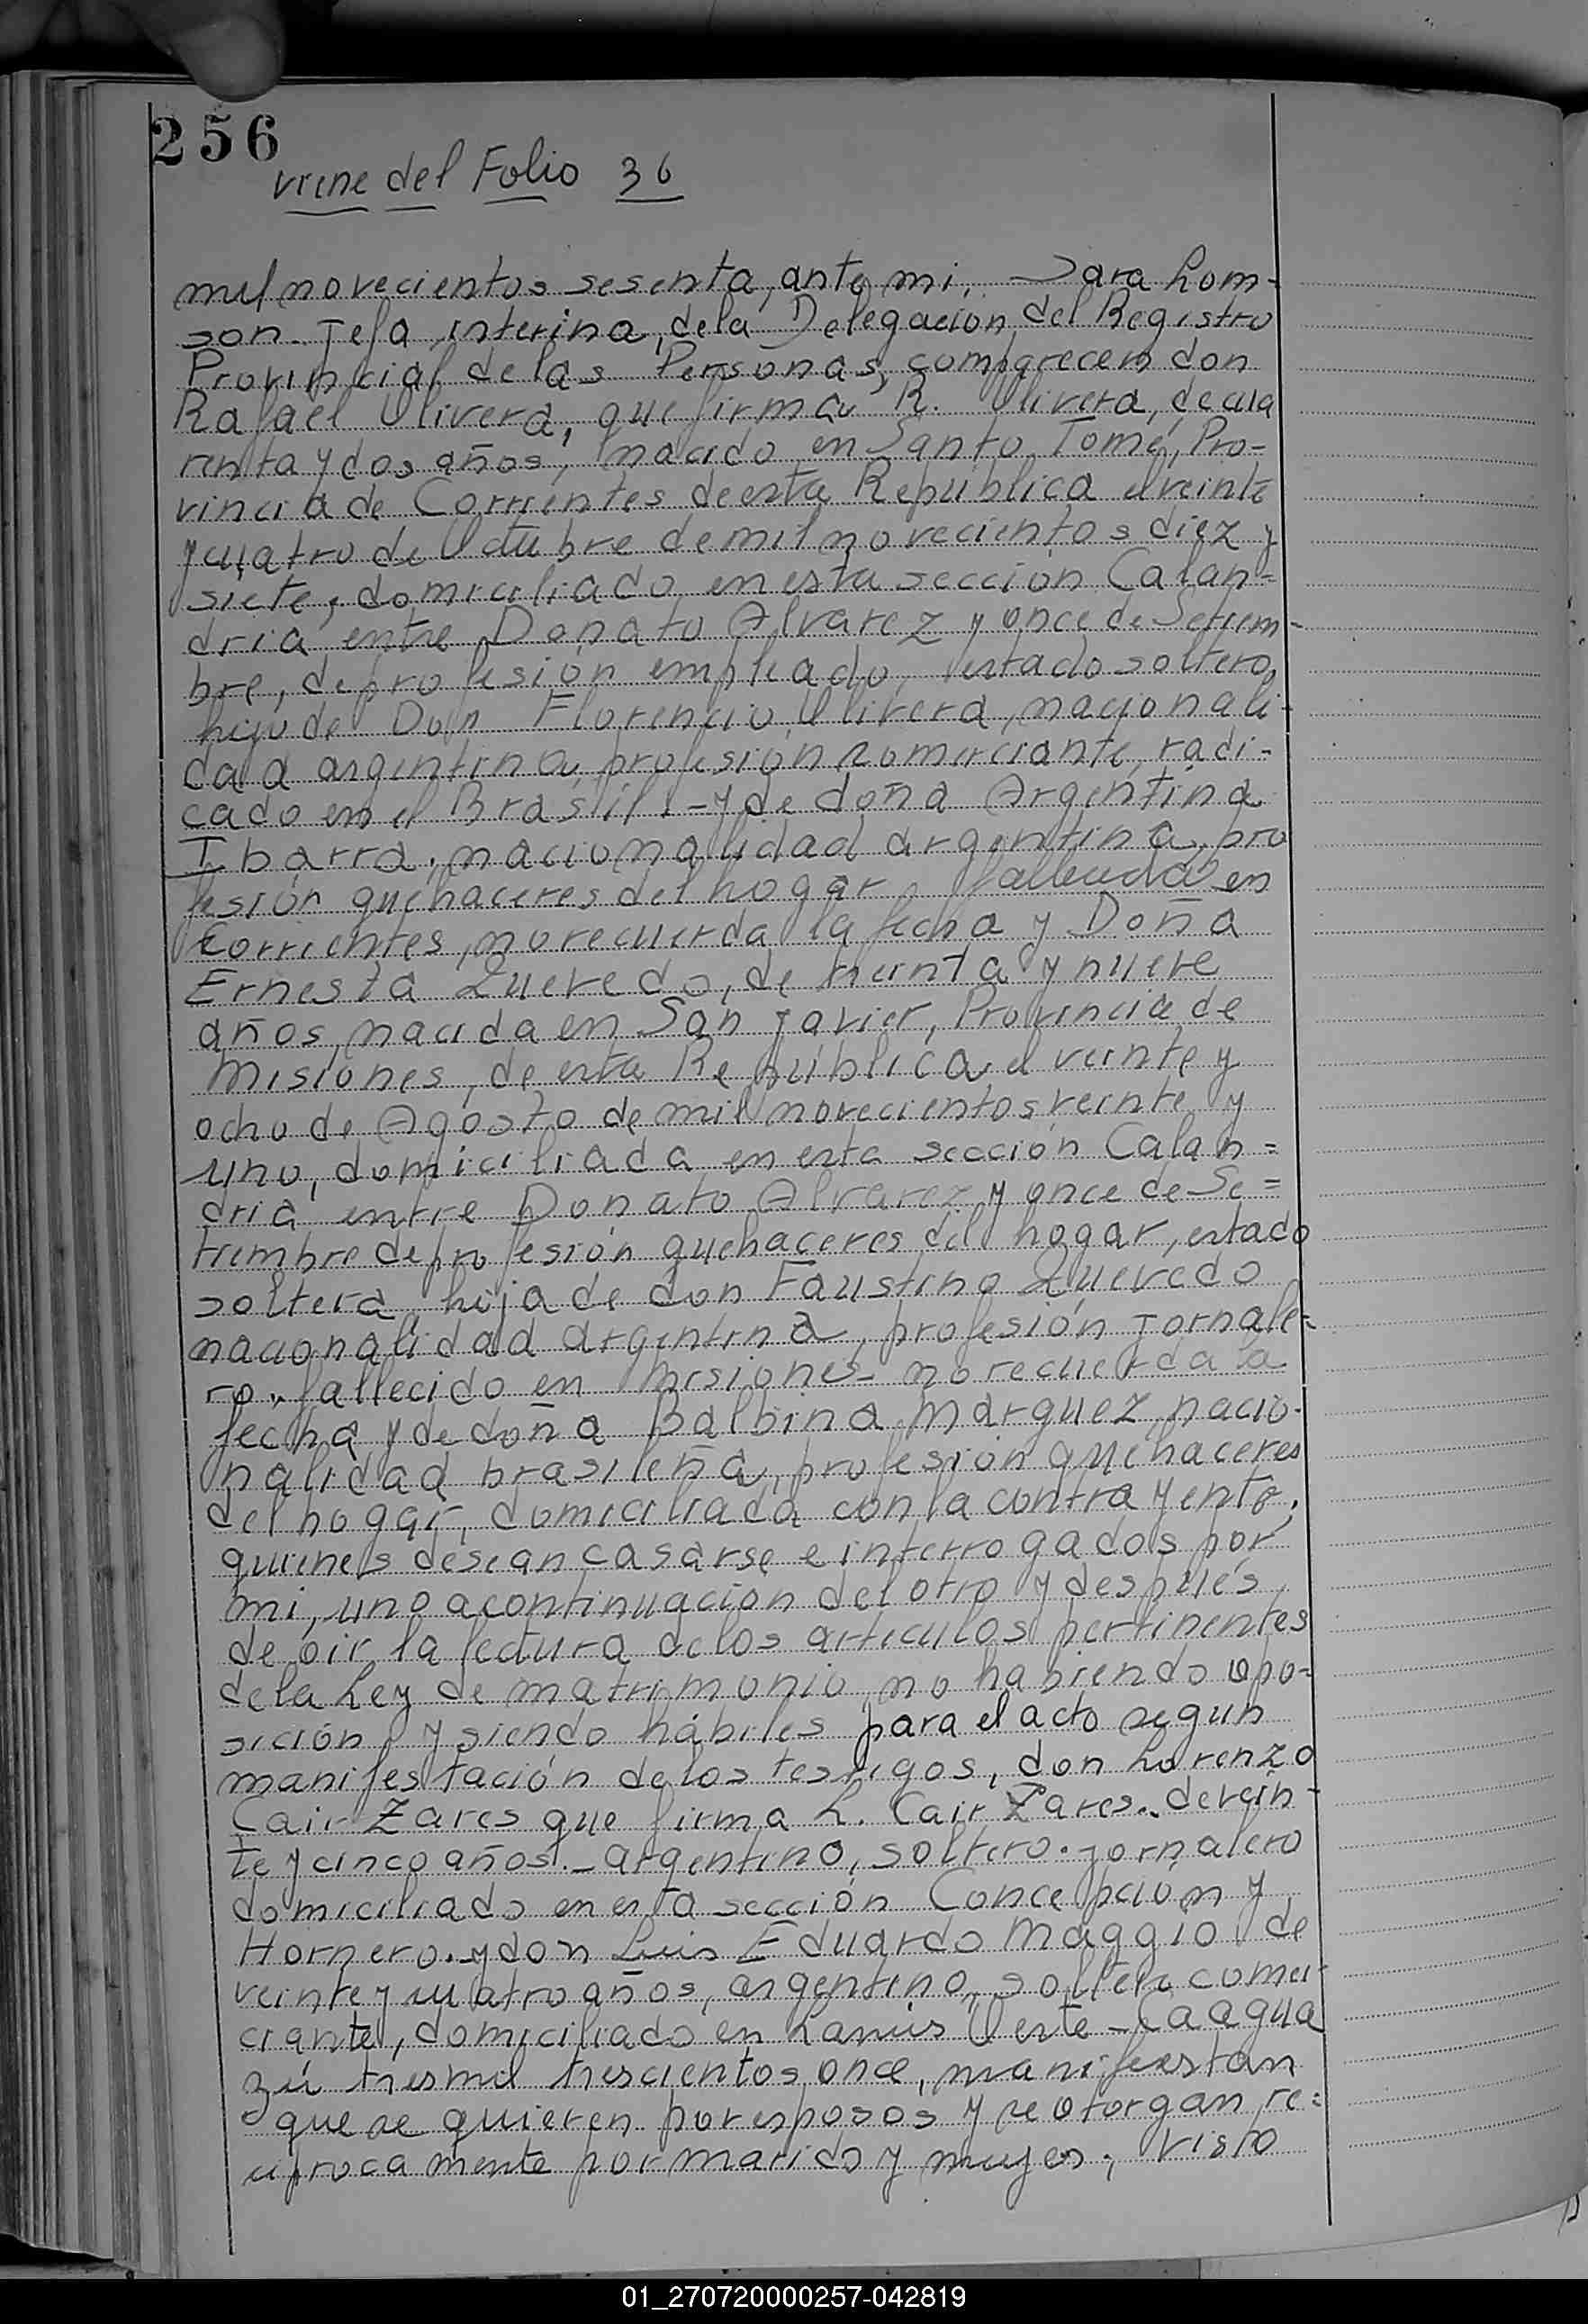 256
viene del Folio 36
mil novecientos sesenta, ante mi, Sara Lom-
son. Jefa interina, de la Delegacion del Registro
Provincial de las Personas, comparecen don
Rafael Olivera, que firma R. Olivera, de cua
renta y dos años, nacido en Santo Tomé, Pro-
vincia de Corrientes de esta Republica el veinte
y cuatro de Octubre de mil novecientos diez y
siete, domiciliado en esta sección Calan=
dria entre Donato Alvarez y once de Setiem-
bre, de profesión empleado, estado soltero,
hijo de Don Florencio Olivera, nacionali-
dad argentina, profesión comerciante, radi-
cado en el Brasil.- y de doña Argentina
Ibarra, nacionalidad argentina, pro
fesión quehaceres del hogar, fallecida en
Corrientes, no recuerda la fecha y Doña
Ernesta Quevedo, de treinta y nueve
años, nacida en San Javier, Provincia de
Misiones, de esta República, el veinte y
ocho de Agosto de mil novecientos veinte y
uno, domiciliada en esta sección Calan=
dria entre Donato Alvarez y once de Se=
tiembre de profesión quehaceres del hogar, estado
soltera, hija de don Faustino Quevedo
nacionalidad argentina, profesión jornale=
ro., fallecido en Misiones - no recuerda la
fecha y de doña Balbina Marquez, nacio-
nalidad brasileña, profesión quehaceres
del hogar, domiciliada con la contrayente,
quienes desean casarse e interrogados por
mi, uno a continuación del otro y después
de oir la lectura de los artículos pertinentes
de la Ley de matrimonio, no habiendo opo=
sición y siendo hábiles para el acto segun
manifestación de los testigos, don Lorenzo
Cair Zares que firma L. Cair Zares.. de vein-
te y cinco años.- argentino, soltero. jornalero
domiciliado en esta sección Concepción y
Hornero. y don Luis Eduardo Maggio de
veinte y cuatro años, argentino, soltero comer-
ciante, domiciliado en Lanús Oeste - Caagua
zú tres mil trescientos once, manifiestan
que se quieren por esposos y se otorgan re=
ciprocamente por marido y mujer, visto
01_270720000257-042819